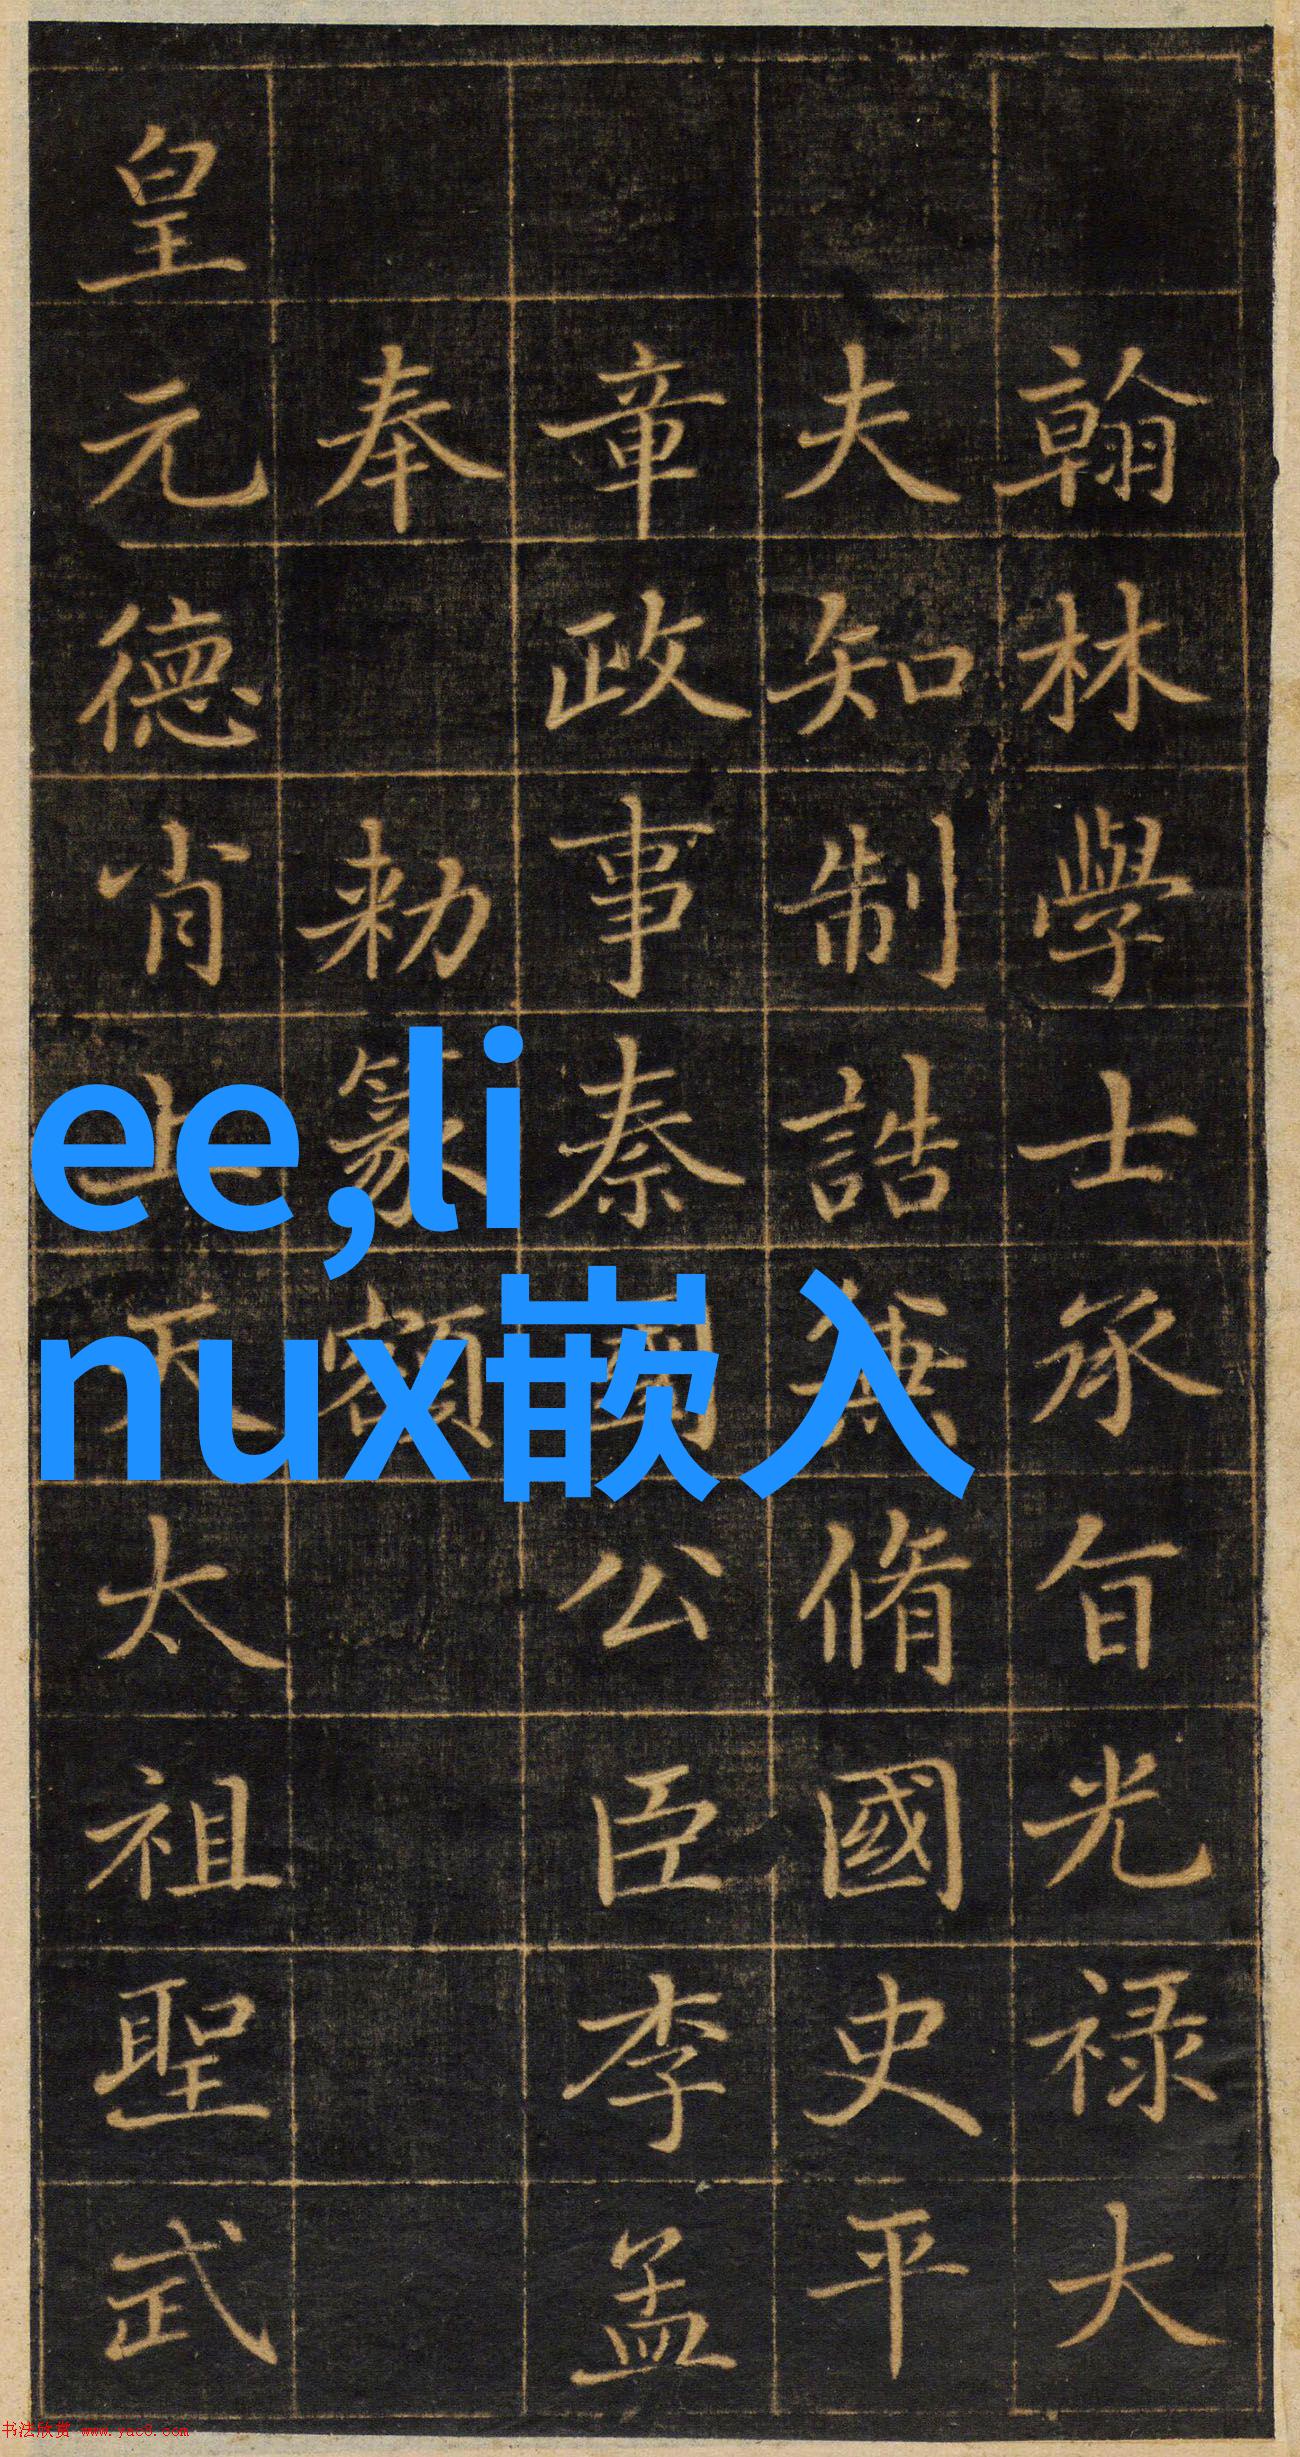 翰林學士承旨光禄大
夫知制誥兼脩國史平
章政事秦國公臣李孟
奉勑篆額
皇元德肖上天太祖聖武
ee,li
nux嵌入
书法欣赏 www.yac8.com